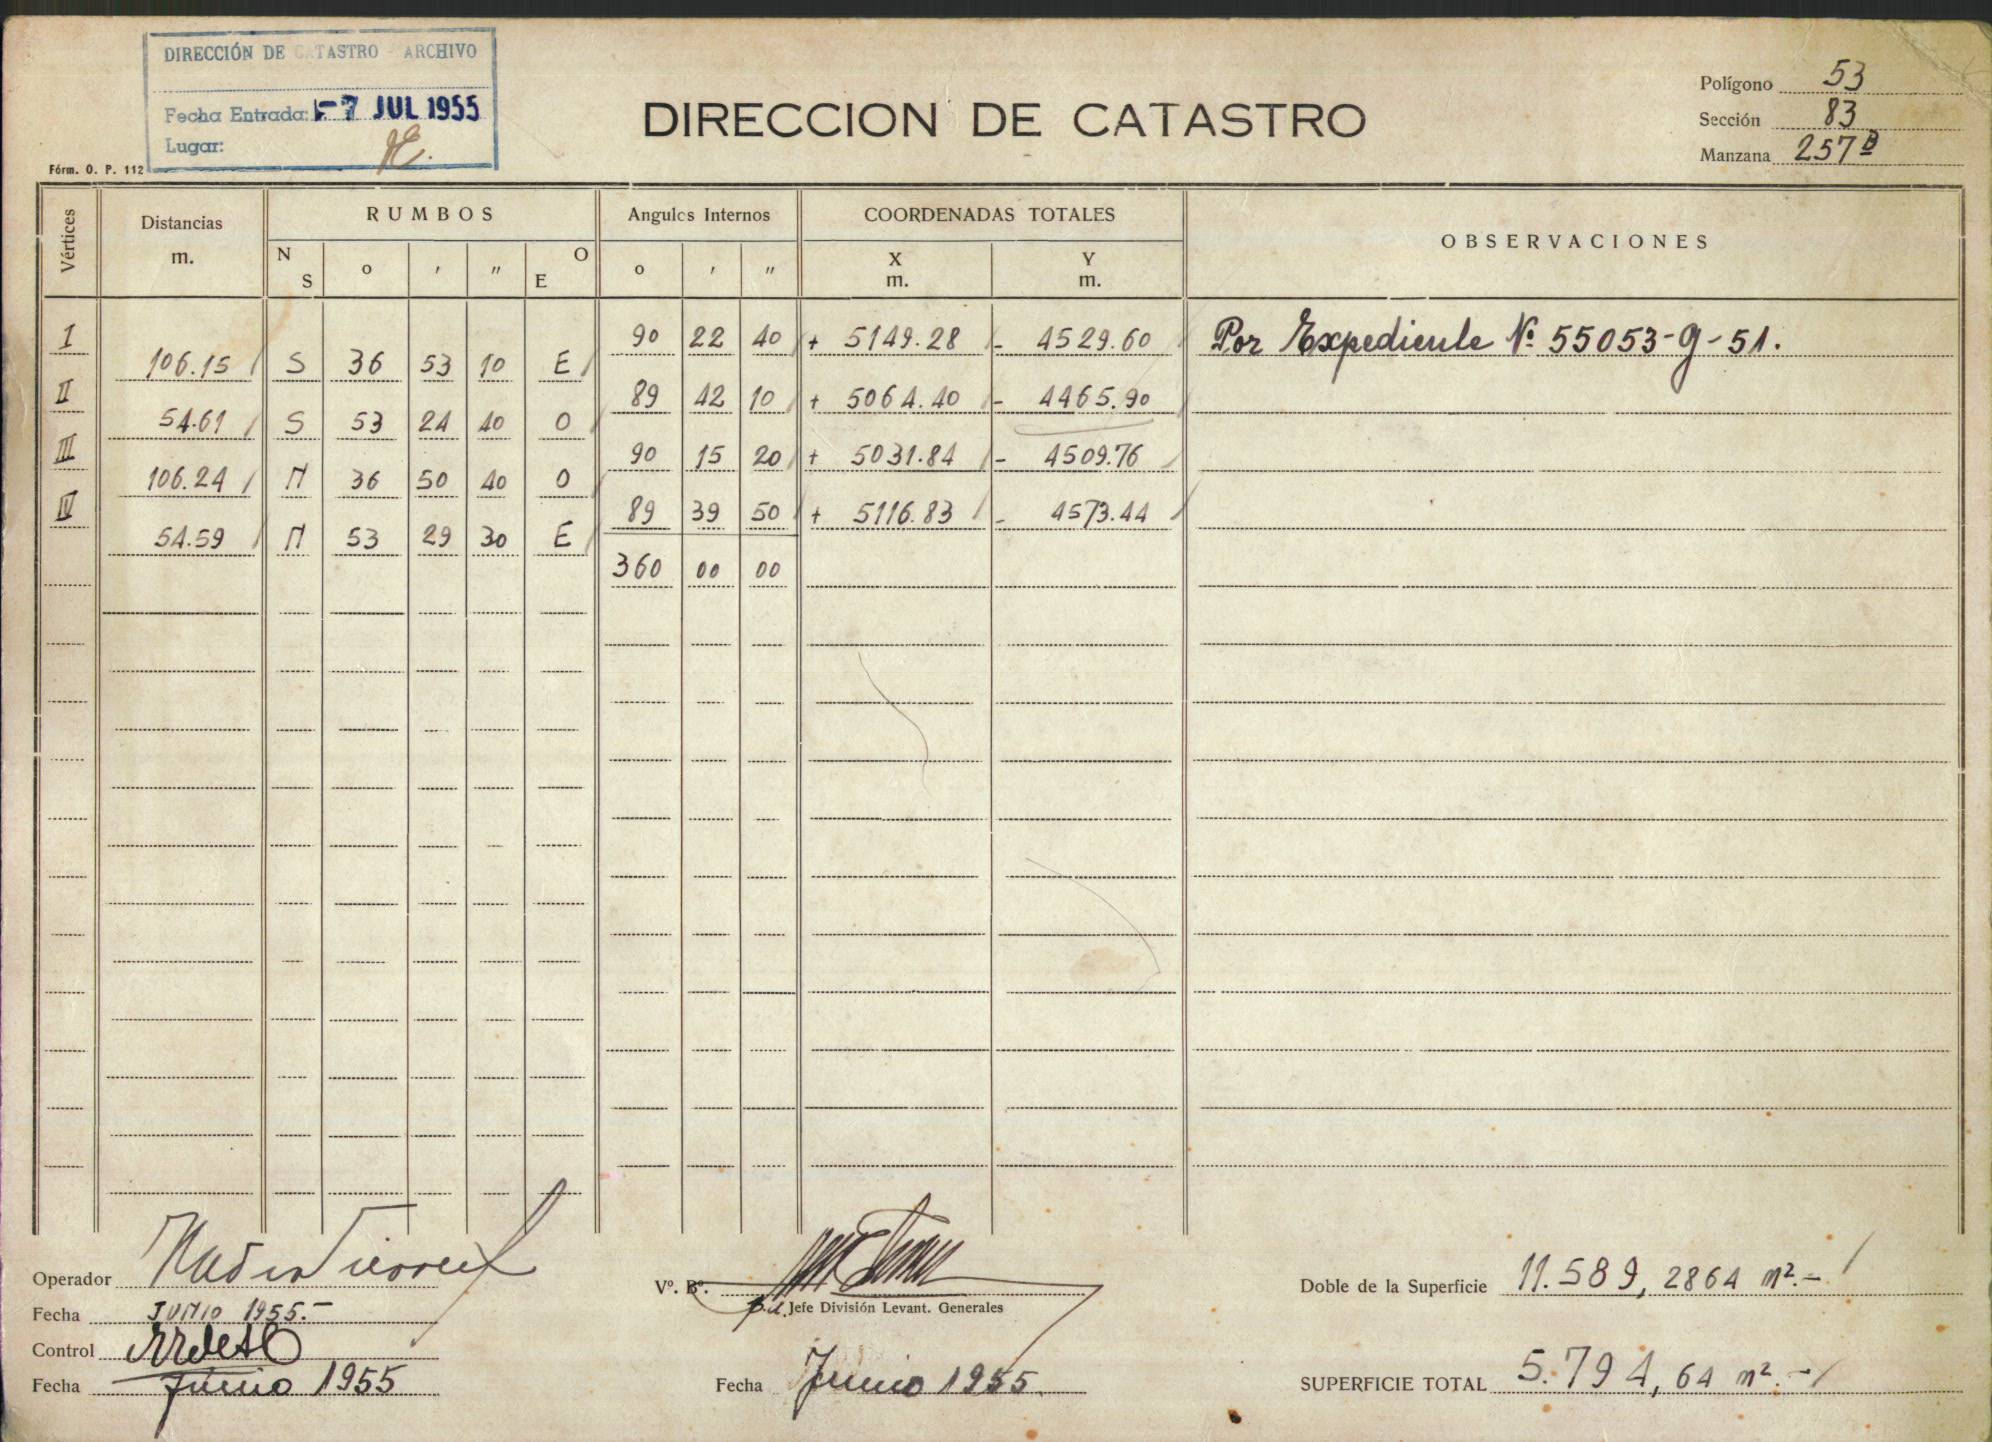 DIRECCIÓN DE CATASTRO ARCHIVO
Fecha Entrada: -7 JUL 1955
Lugar:
Fórm. O. P. 112
DIRECCION DE CATASTRO
Polígono 53
Sección 83
Manzana 257 B
Vértices Distancias m. RUMBOS Angulos Internos COORDENADAS TOTALES OBSERVACIONES
N S o ' " O E o ' " X m. Y m.
I 90 22 40 + 5149.28 - 4529.60 Por Expediente Nº 55053-g-51.
106.15 S 36 53 10 E
II 89 42 10 + 5064.40 - 4465.90
54.61 S 53 24 40 O
III 90 15 20 + 5031.84 - 4509.76
106.24 N 36 50 40 O
IV 89 39 50 + 5116.83 - 4573.44
54.59 N 53 29 30 E
360 00 00
Operador
Fecha JUNIO 1955.-
Control
Fecha Junio 1955
Vº. Bº.
p.a. Jefe División Levant. Generales
Fecha Junio 1955.
Doble de la Superficie 11.589, 2864 m².-
SUPERFICIE TOTAL 5.794, 64 m².-